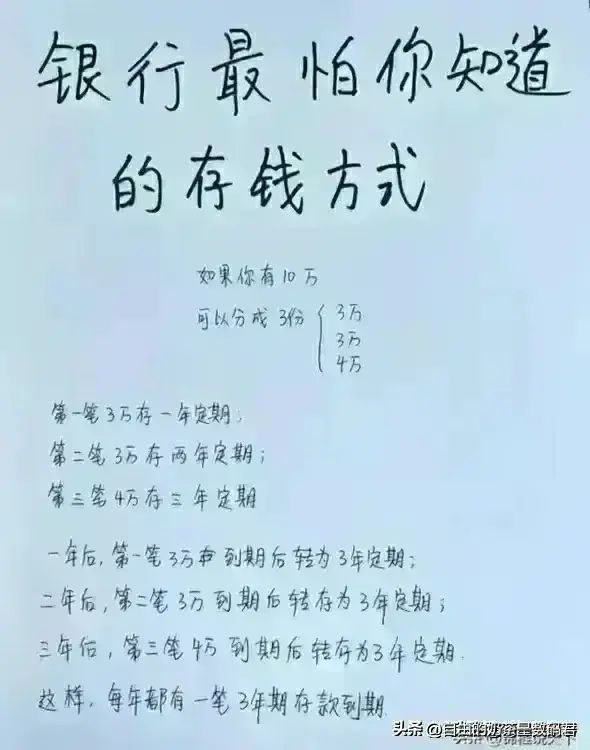 银行最怕你知道
的存钱方式
如果你有10万
可以分成3份
3万
3万
4万
第一笔3万存一年定期;
第二笔3万存两年定期;
第三笔4万存三年定期
一年后,第一笔3万到期后转为3年定期;
二年后,第二笔3万到期后转存为3年定期;
三年后,第三笔4万到期后转存为3年定期.
这样,每年都有一笔3年期存款到期.
头条@自由的奶茶量数码君